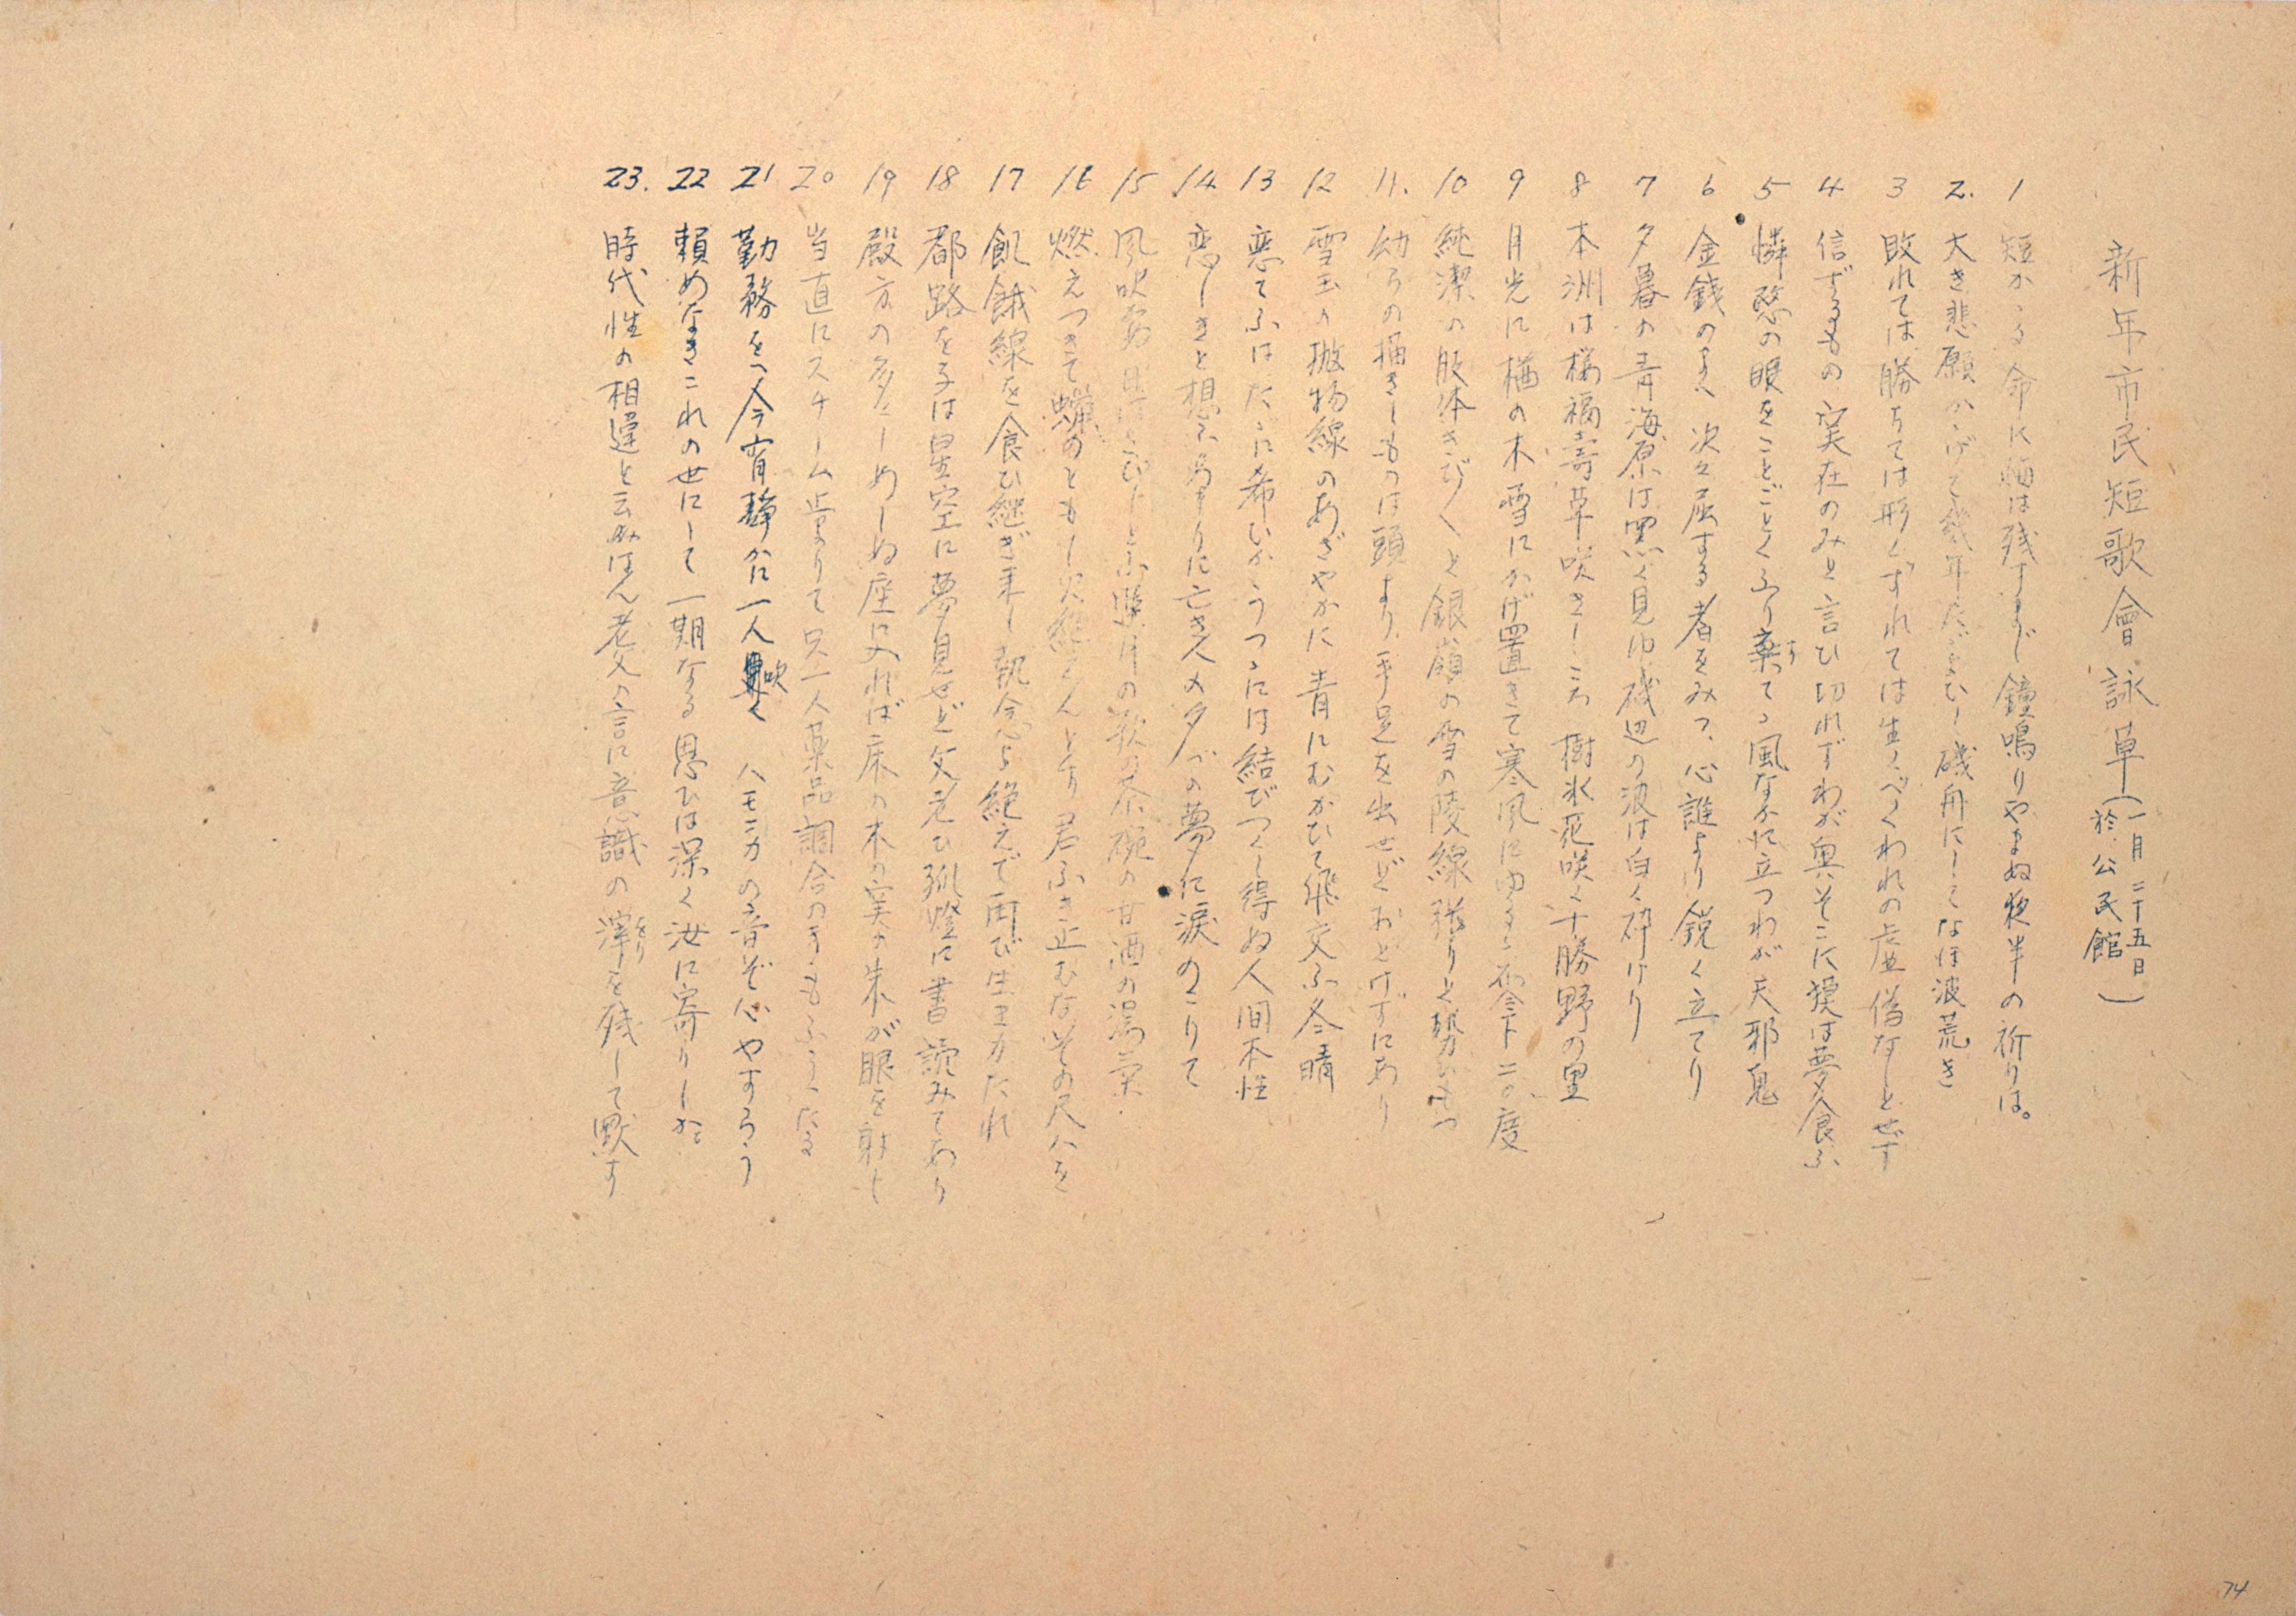 新年市民短歌會詠草(一月二十五日 於 公民館)
1 短かる命に 残すまじ鐘鳴りやまぬ夜半の祈りは。
2. 大き悲願かゝげて幾年たゞよひし磯舟にしてなほ波荒き
3 敗れては勝ちては形くずれては生くべくわれの虚偽なしとせず
4 信ずるもの実在のみと言ひ切れずわが奥そこに獏は夢食ふ
5 憐愍の眼をことごとくふり棄(す)てゝ風なかに立つわが天邪鬼
6 金銭のまへ次々屈する者をみつゝ心誰より鋭く立てり
7 夕暮の青海原は黒く見ゆ磯辺の波は白く砕けり
8 本洲は桜福寿草咲きしころ樹氷花咲く十勝野の里
9 月光に楢の木雪にかげ置きて寒風にゆるゝ零下二〇度
10 純潔の肢体きびしくと銀嶺の雪の陵線張りと勢ひもつ
11. 幼ろの描きしものは頭より手足を出せどおどけずにあり
12 雪玉の抛物線のあざやかに青にむかひて飛交ふ冬晴
13 恋てふはたゞに希ひかうつゝには結びつくし得ぬ人間本性
14 恋しきと想ふあまりに亡き人の夕べの夢に涙のこりて
15 風吹 月の 茶碗の甘酒の湯気
16 燃えつきて蝋のともし火 んとす君ふき止むなその尺八を
17 飢餓線を食ひ継ぎ来し執念よ絶えで再び生 たれ
18 都路を子は星空に夢見せど父老ひ孤燈に書読みてあり
19 殿方の多くしめしぬ座に入れば床の木の実の朱が眼を射し
20 当直にスチーム止まりて只一人薬品調合の手もふるへたる
21 勤務をへ今宵静かに一人吹く ハモニカの音ぞ心やすろう
22 頼めなきこれの世にして一期なる思ひは深く汝に寄りしか
23. 時代性の相違と云はん老父の言に意識の滓(をり)を残して黙す
74